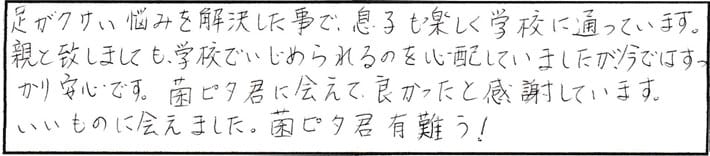 足がクサい悩みを解決した事で、息子も楽しく学校に通っています。
親と致しましても、学校でいじめられるのを心配していましたが、今ではすっ
かり安心です。菌ピタ君に会えて良かったと感謝しています。
いいものに会えました。菌ピタ君有難う!